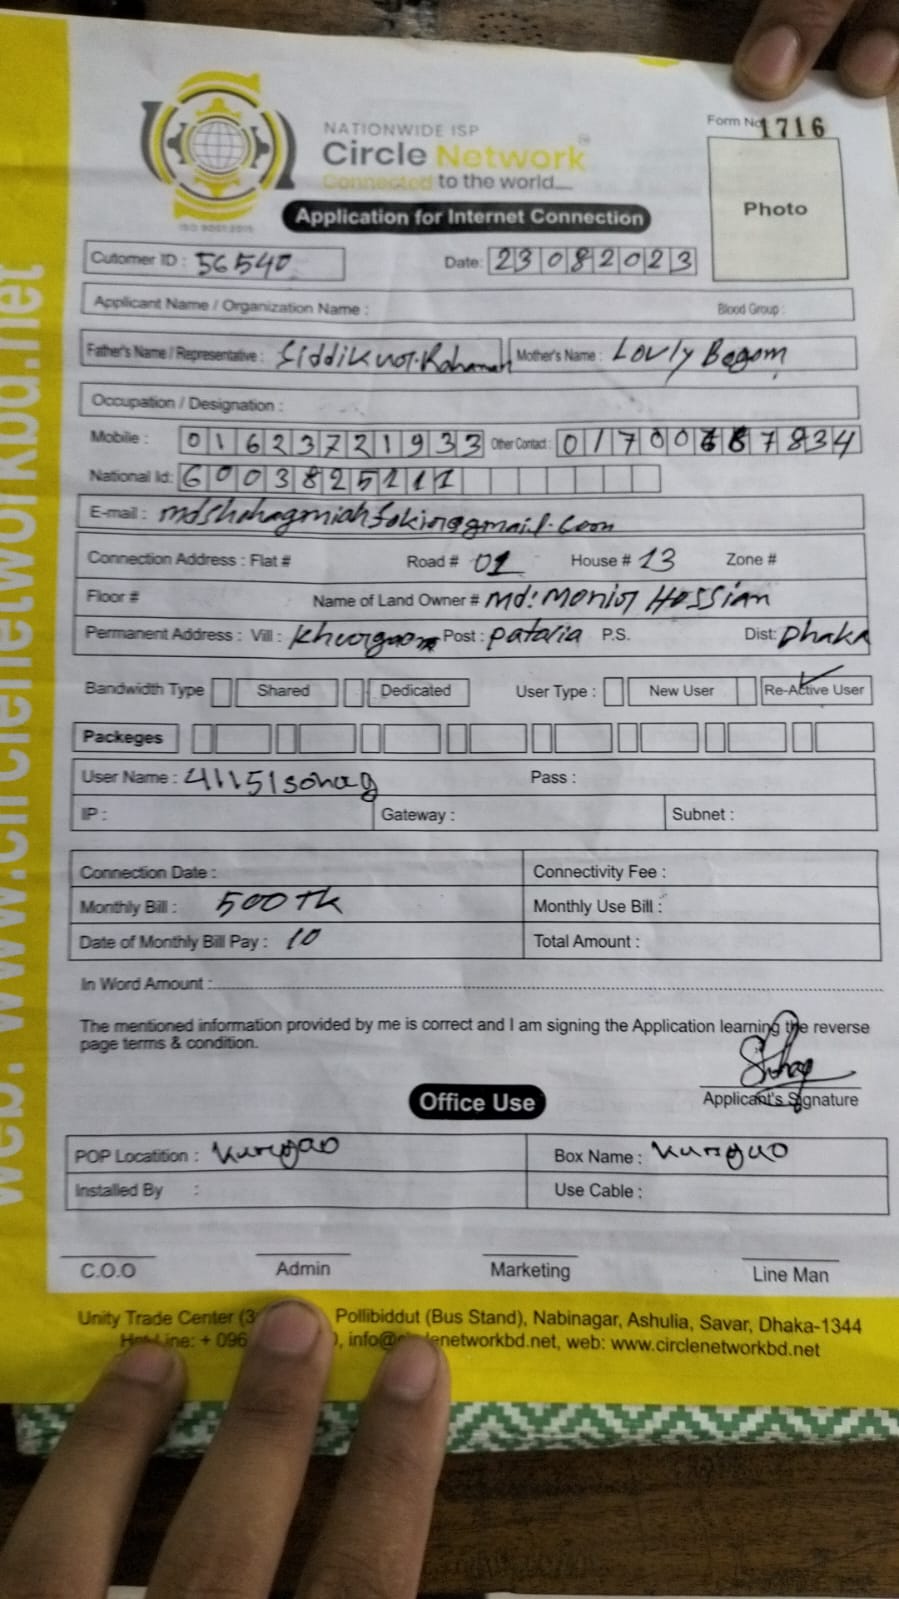 NATIONWIDE ISP
Circle Network
Connected to the world....
ISO 9001:2015
Form No 1716
Photo
Application for Internet Connection
Cutomer ID : 56540 Date: 23082023
Applicant Name / Organization Name : Blood Group :
Father's Name / Representative : Siddikur Rahaman Mother's Name : Lovly Begom
Occupation / Designation :
Moblie : 01623721933 Other Contact : 017006
National Id: 6003825211
E-mail :
Connection Address : Flat # Road # 01 House # 13 Zone #
Floor # Name of Land Owner # Md: Monir Hossian
Permanent Address : Vill : Post : pataria P.S. Dist: Dhaka
Bandwidth Type Shared Dedicated User Type : New User Re-Active User
Packeges
User Name : 41151sohag Pass :
IP : Gateway : Subnet :
Connection Date : Connectivity Fee :
Monthly Bill : 500 Tk Monthly Use Bill :
Date of Monthly Bill Pay : 10 Total Amount :
In Word Amount :
The mentioned information provided by me is correct and I am signing the Application learning the reverse
page terms & condition.
Applicant's Signature
Office Use
POP Locatition : Box Name :
Installed By : Use Cable :
C.O.O Admin Marketing Line Man
Unity Trade Center (3 Pollibiddut (Bus Stand), Nabinagar, Ashulia, Savar, Dhaka-1344
Hot Line: + 096 ), info@circlenetworkbd.net, web: www.circlenetworkbd.net
web: www.circlenetworkbd.net